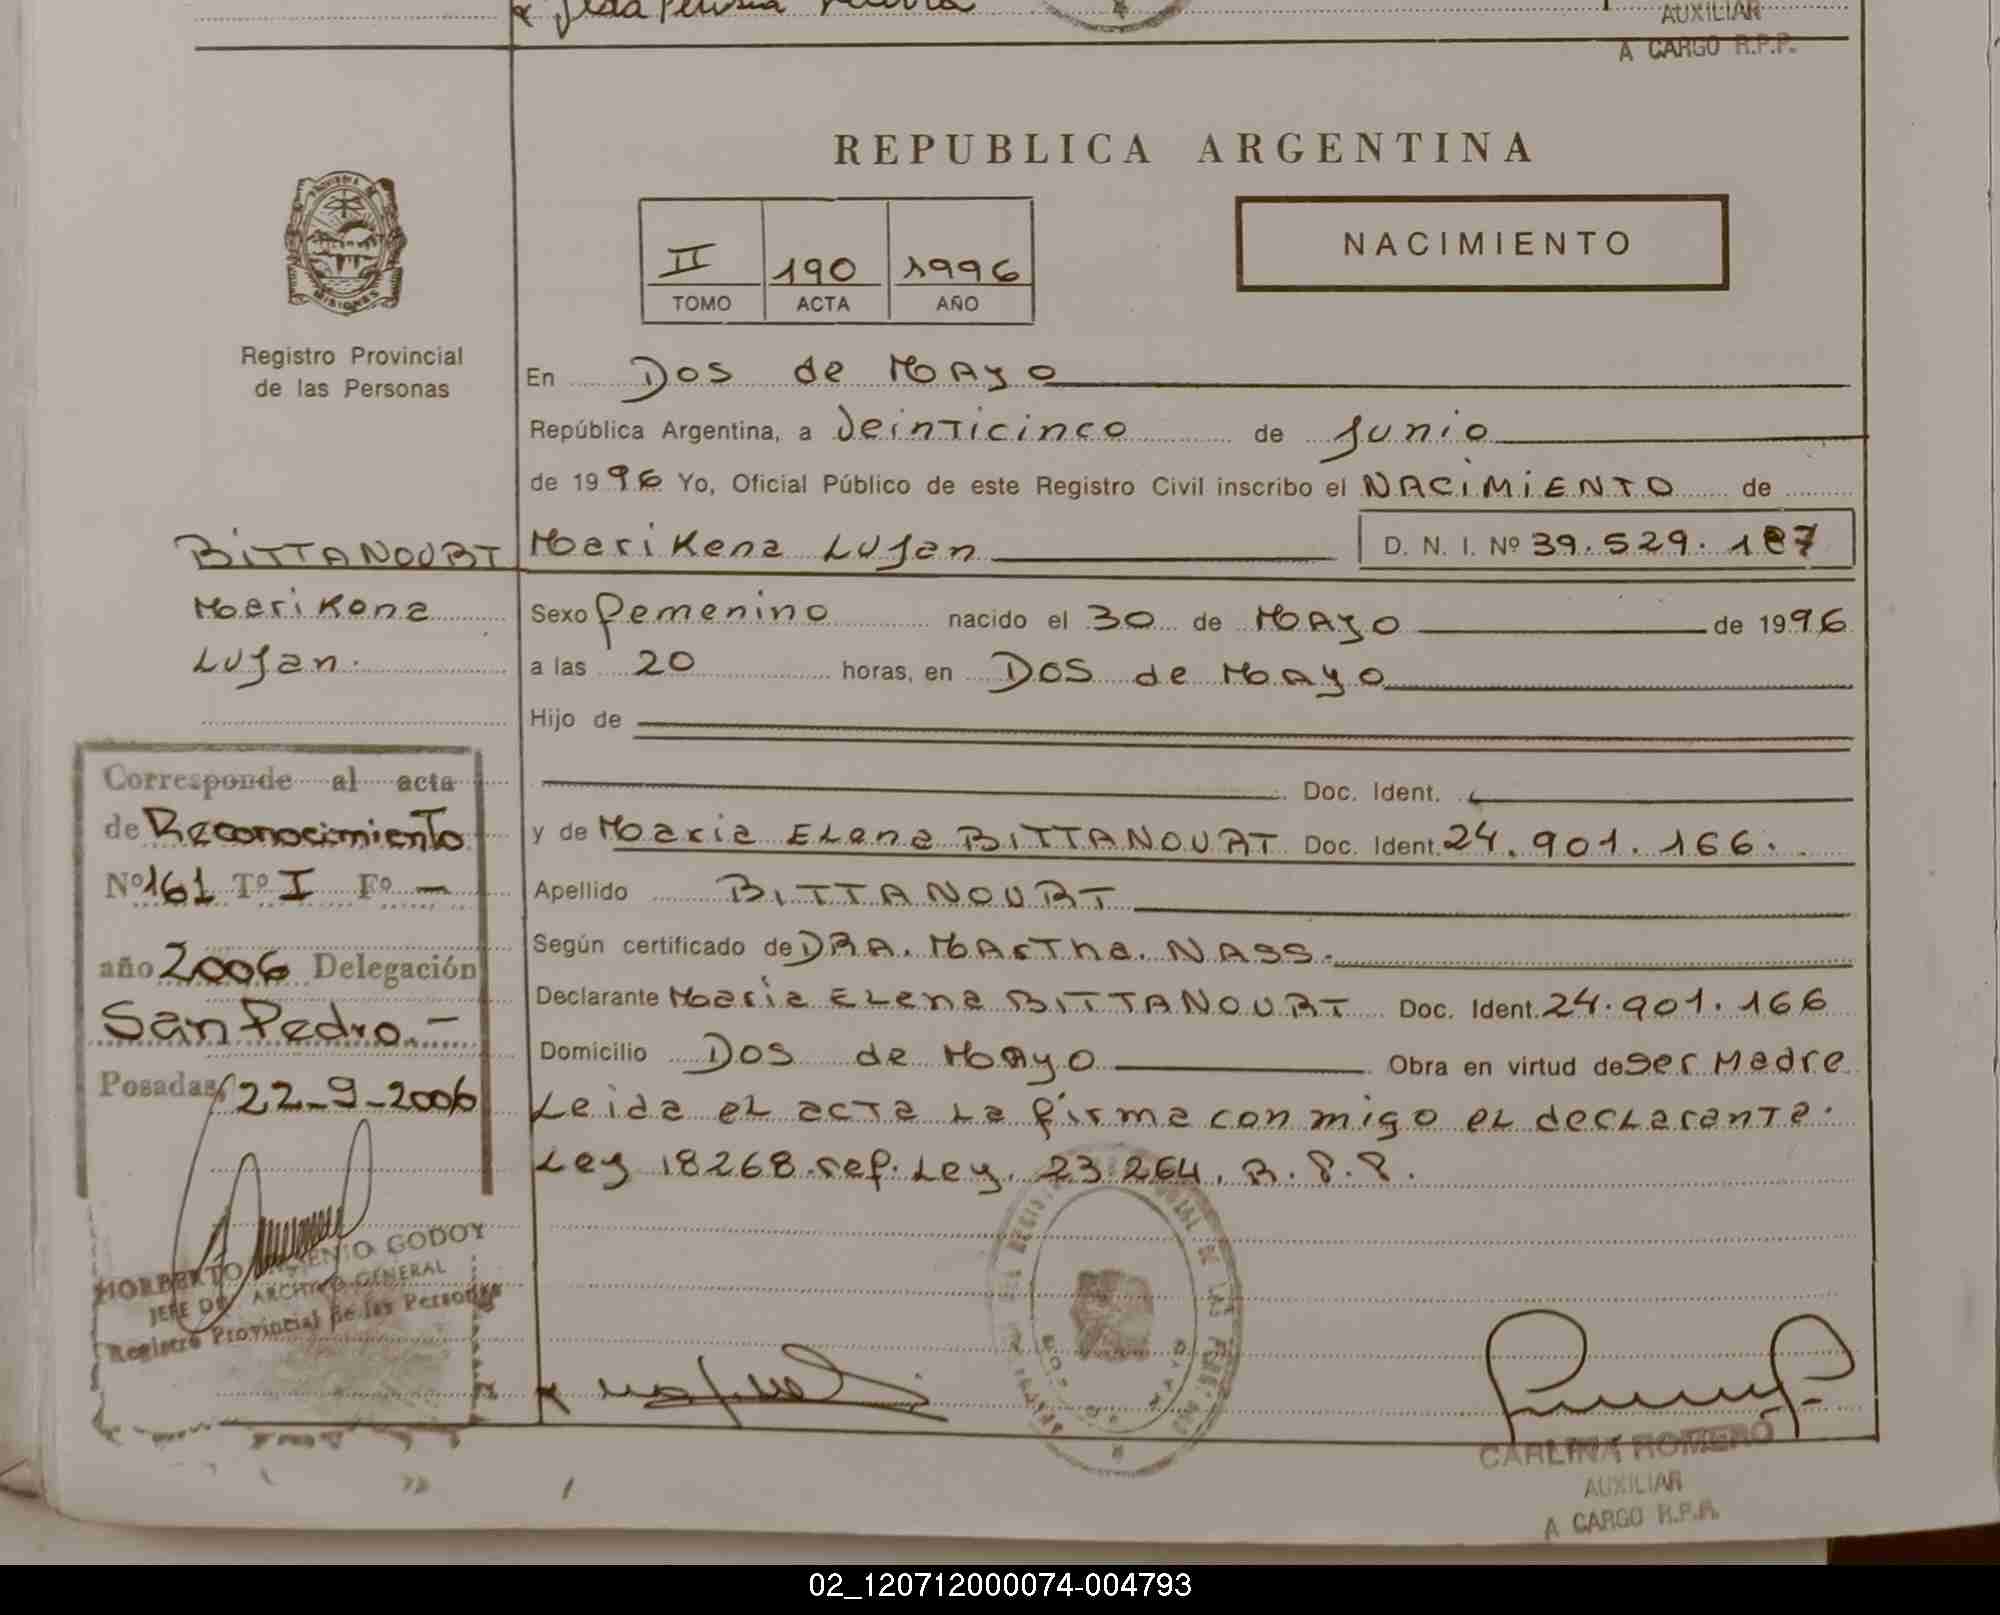 AUXILIAR
A CARGO R.P.P.
REPUBLICA ARGENTINA
NACIMIENTO
II 190 1996
TOMO ACTA AÑO
MISIONES
Registro Provincial
de las Personas
En Dos de Mayo
República Argentina, a Veinticinco de Junio
de 1996 Yo, Oficial Público de este Registro Civil inscribo el NACIMIENTO de
BITTANOURT Marikena Lujan D. N. I. Nº 39.529.187
Marikena
Lujan.
Sexo femenino nacido el 30 de Mayo de 1996
a las 20 horas, en Dos de Mayo
Hijo de
Doc. Ident.
y de Maria Elena BITTANOURT Doc. Ident. 24.901.166.
Apellido BITTANOURT
Según certificado de DRA. Martha. NASS.
Declarante Maria Elena BITTANOURT Doc. Ident. 24.901.166
Domicilio Dos de Mayo Obra en virtud de ser Madre
Leida el acta la firma con migo el declarante.
Ley 18268.ref.Ley. 23.264. R.P.P.
Corresponde al acta
de Reconocimiento
Nº 161 Tº I Fº -
año 2006 Delegación
San Pedro.-
Posadas, 22-9-2006
NORBERTO GODOY
JEFE DE ARCHIVO GENERAL
Registro Provincial de las Personas
CARLINA ROMERO
AUXILIAR
A CARGO R.P.P.
02_120712000074-004793